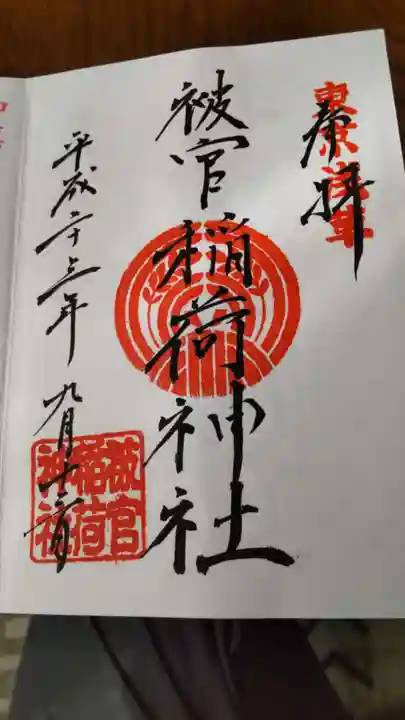 奉拝
東京浅草
被官稲荷神社
平成二十三年 九月十二日
被官
稲荷
神社